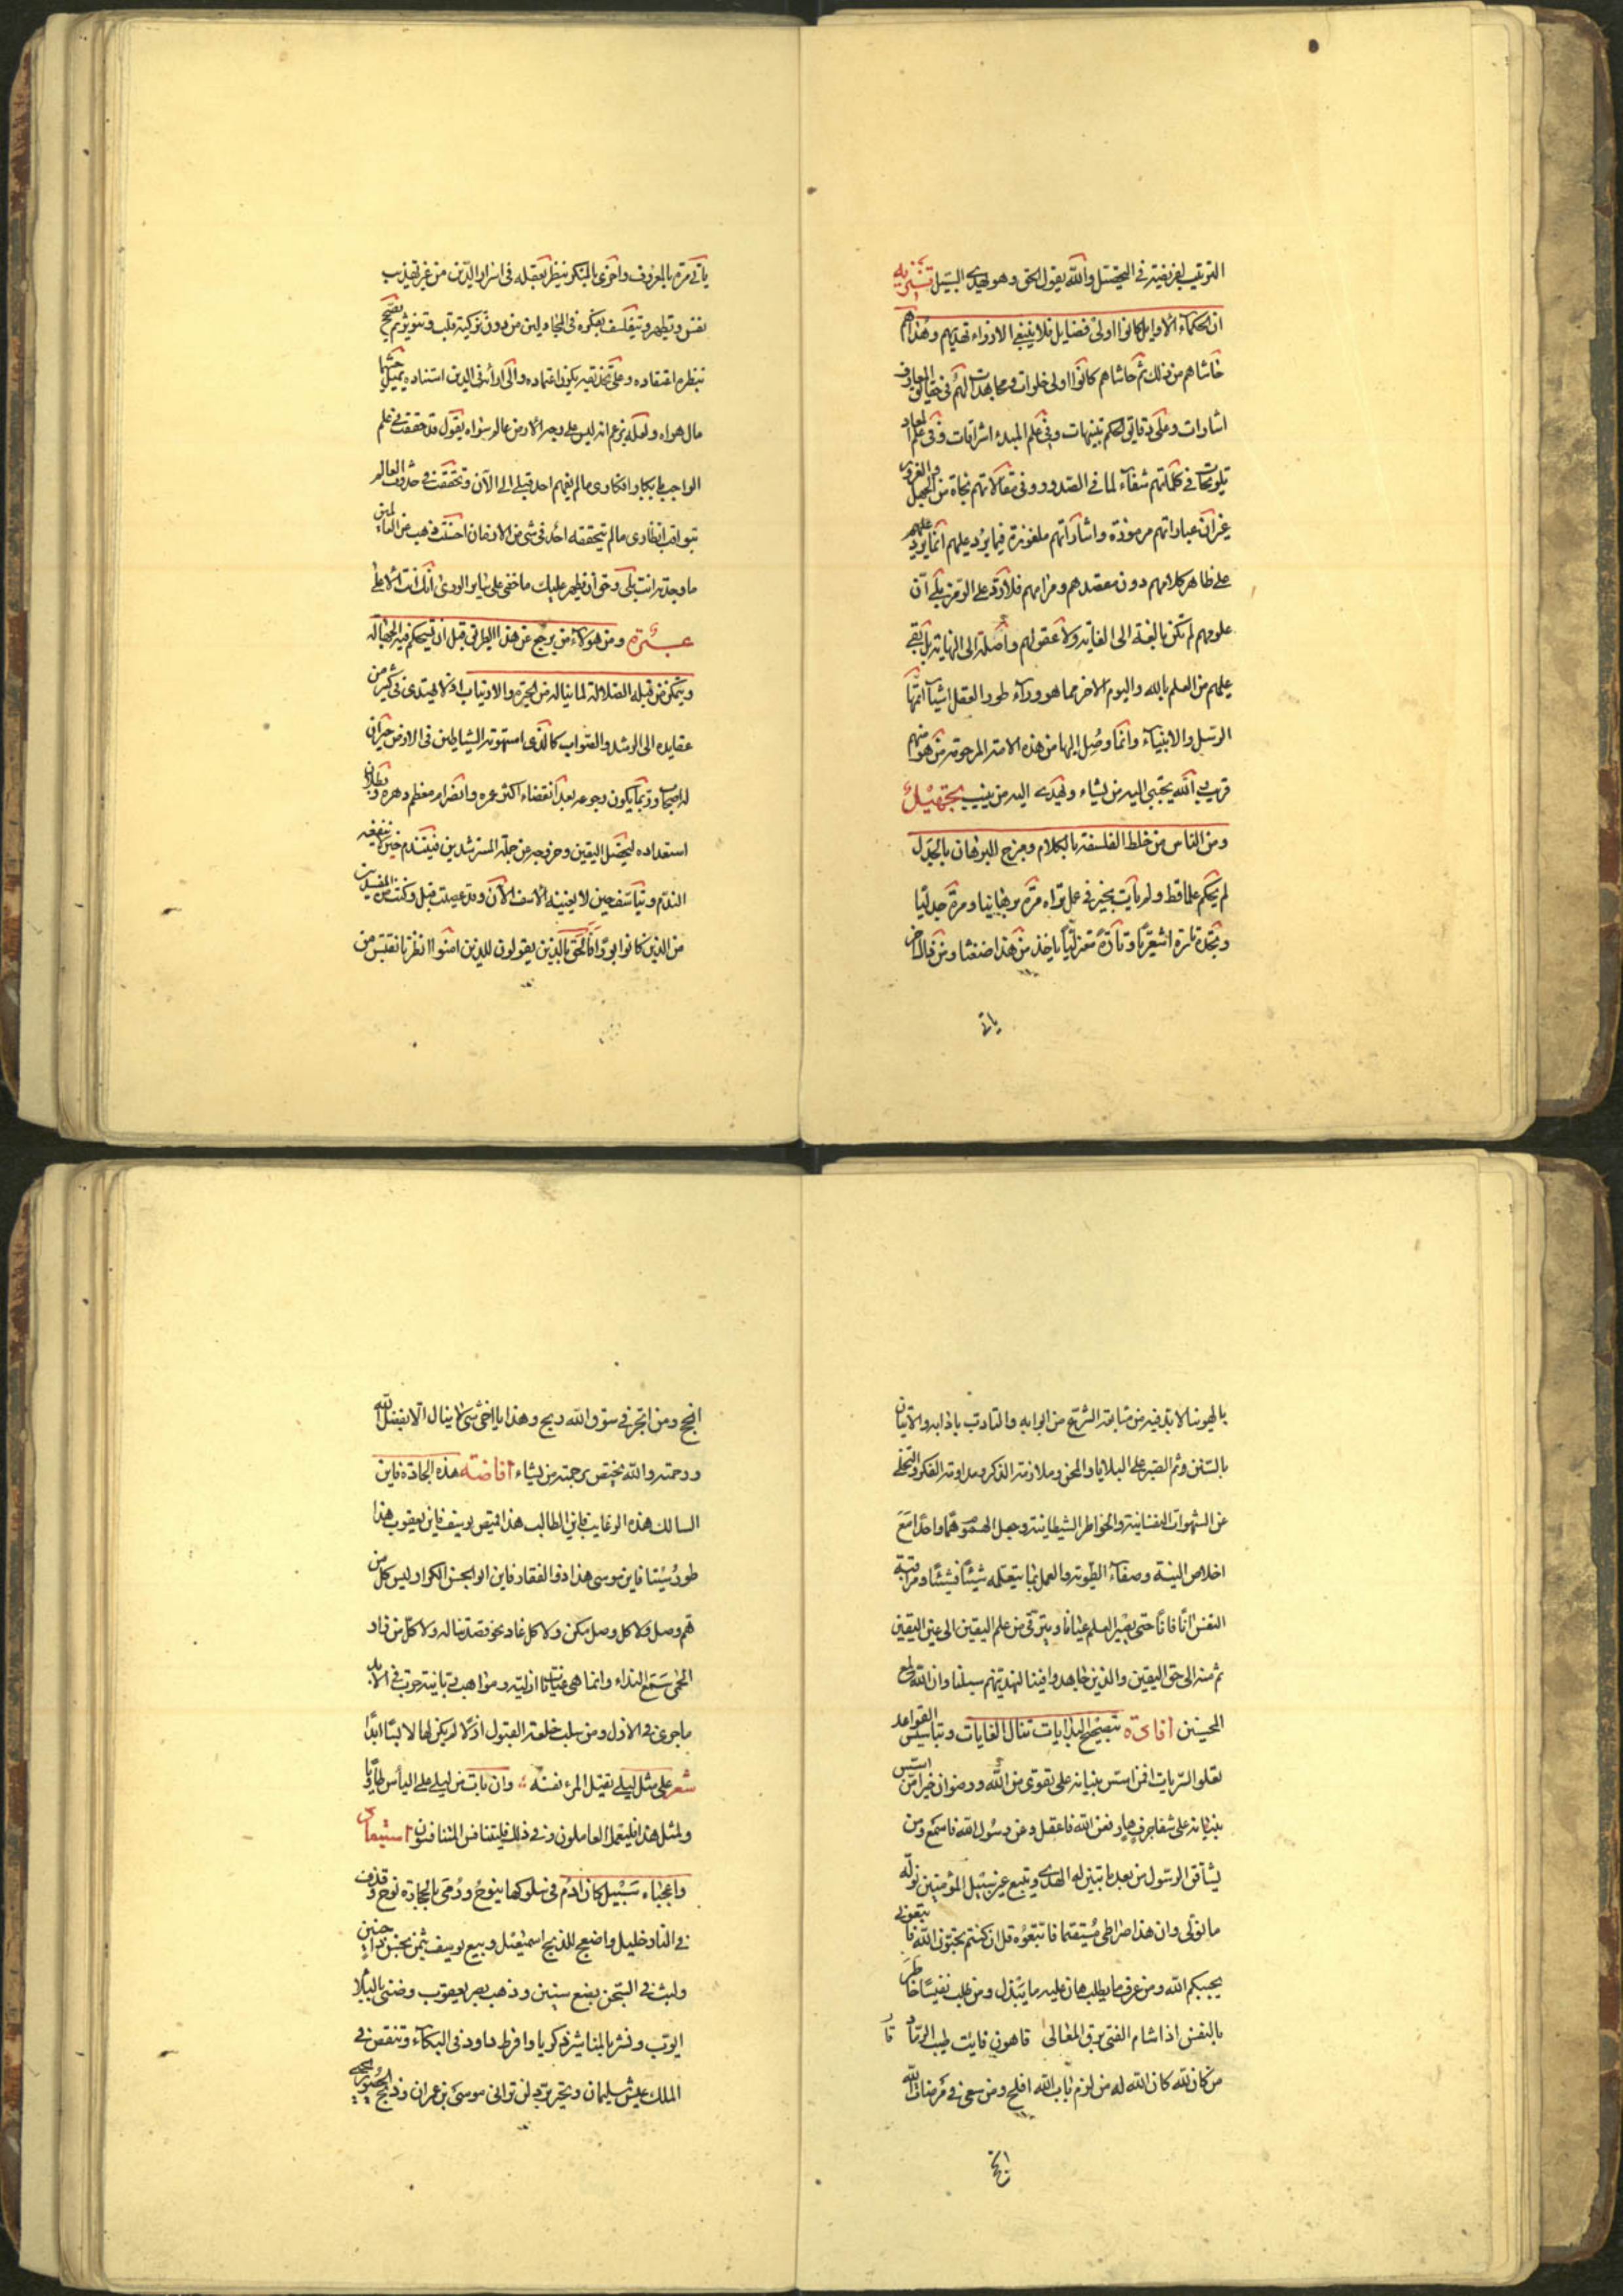 الترتيب لغريفية في التحصيل والله يقول الحق وهو يهدي السبيل تنزيه
ان الحكماء الاوايل كانوا اولى فضايل فلا ينبغي الازراء بهديهم وهداهم
حاشاهم من ذلك ثم حاشاهم كانوا اولى خلوات ومجاهدات لهم في حقايق المعارف
اشارات وعلى دقايق الحكم تنبيهات وفي علم المبدء اشراقات وفي علم المعاد
تلويحات في كلماتهم شفآء لما في الصدور وفي مقالاتهم نجاة من الجهل والغرور
غير ان عباراتهم مرموزة واشاراتهم ملغوزة فما يرد عليهم انما يرد عليهم
على ظاهر كلامهم دون مقصدهم ومرامهم فلا رد على الرمز بلى ان
علومهم لم تكن بالغة الى الغاية ولا عقولهم واصلة الى النهاية بل بقي
عليهم من العلم بالله واليوم الاخر مما هو ورآء طور العقل اشيآء اتمها
الرسل والانبيآء وانما وصل اليها من هذه الامة المرحومة من هو منهم
قريب الله يجتبي اليه من يشاء ويهدي اليه من ينيب تجهيل
ومن الناس من خلط الفلسفة بالكلام ومزج البرهان بالجدل
لم يحكم علما قط ولم يأت بخير في عمل تراه مرة برهانيا ومرة جدليا
وتجده تارة اشعريا وتارة معتزليا ياخذ من هذا ضغثا ومن ذاك اخر
ياتي
ياتي مرة بالمعروف واخرى بالمنكر ينظر بعقله في اسرار الدين من غير تهذيب
نفس وتطهر ويتفلسف بفكره في المجاديلين من دون تزكية قلب وتنوير ثم يصحح
بنظره اعتقاده وعلى تحذيقه يكون اعتماده والى ارائه في الدين استناده يميل حيثما
مال هواه ولعله يزعم انه ليس على وجه الارض عالم سواه يقول قد حققت في علم
الواجب بابكار افكاري ما لم يفهم احد قبلي الى الآن وتحققت في حدوث العالم
بثواقب انظاري ما لم يتحققه احد في شي من الازمان احسنت فهب من العالمين
ما وجدته انت بلى وحق ان يظهر عليك ما خفي على ساير الورى انك انت الاعلى
عبرة ومن هؤلاء من يرجع عن هذا الطريق قبل ان يستحكم فيه الجهالة
ويتمكن من قبله الضلالة لما يناله من الحيرة والارتياب اذ لا يهتدى في كثير من
عقايده الى الرشد والصواب كالذى استهوته الشياطين في الارض حيران
له اصحاب وربما يكون رجوعه بعد انقضاء اكثر عمره وانصرام معظم دهره وبطلان
استعداده لتحصيل اليقين وخروجه عن جملة المسترشدين فيتندم حين لا ينفعه
الندم ويتأسف حين لا يغنيه الاسف الآن وقد عصيت قبل وكنت من المفسدين
من الذين كانوا بورا فالحق بالذين يقولون للذين امنوا انظرونا نقتبس من
بالهوينا لابد فيه من متابعة الشرع من ابوابه والتادب باذابه والاتيان
بالسنن وثم الصبر على البلايا والمحن وملازمة الذكر ومداومة الفكر والتخلي
عن الشهوات النفسانية والخواطر الشيطانية وجعل الهموم هما واحدا مع
اخلاص النية وصفآء الطوية والعمل بما يتعلمه شيئا فشيئا ومراقبة
النفس انا فانا حتى يصير العلم عيانا ويترقى من علم اليقين الى عين اليقين
ثم منه الى حق اليقين والذين جاهدوا فينا لنهدينهم سبلنا وان الله لمع
المحسنين افادة بتصحيح البدايات تنال الغايات وبتاسيس القواعد
تعلو السريات افمن اسس بنيانه على تقوى من الله ورضوان خير امن اسس
بنيانه على شفا جرف هار فعن الله فاعقل وعن رسول الله فاسمع ومن
يشاقق الرسول من بعد ما تبين له الهدى ويتبع غير سبيل المؤمنين نوله
ما تولى وان هذا صراطي مستقيما فاتبعوه قل ان كنتم تحبون الله فاتبعوني
يحببكم الله ومن عرف ما يطلب هان عليه ما يبذل ومن طلب نفيسا خاطر
بالنفس اذا شام الفتى برق المعالى فاهون فايت طيب الرقاد
من كان لله كان الله له من لزم باب الله افلح ومن سعى في مرضات الله
انجح
انجح ومن اتجر في سوق الله ربح وهذا يا اخي شئ لا ينال الا بفضل الله
ورحمته والله يختص برحمته من يشاء افاضة هذه الجادة فاين
السالك هذه الرغايب فاين الطالب هذا قميص يوسف فاين يعقوب هذا
طور سينا فاين موسى هذا ذو الفقار فاين ابو الحسن الكرار ليس كل من
هم وصل ولا كل وصل يمكن ولا كل غاد نحو قصد ناله ولا كل من زار
الحمى سمع النداء وانما هي عنايات ازلية ومواهب ربانية جرت في الابد
ما جرى في الازل ومن سلب خلعة القبول ازلا لم يكن لها لابسا ابدا
شعر على مثل ليلى يقتل المرء نفسه وان بات من ليلى على اليأس طاويا
ولمثل هذا فليعمل العاملون وفي ذلك فليتنافس المتنافسون
واعجباه سبيل كان ادم في سلوكها ينوح ورمى بالحجارة نوح وقذف
في النار خليل واضجع للذبح اسمعيل وبيع يوسف بثمن بخس
ولبث في السجن بضع سنين وذهب بصر يعقوب وضنى بالبلا
ايوب ونشر بالمناشير زكريا وافرط داود في البكآء وتنغص في
الملك عيش سليمان وتحير برد لن تراني موسى بن عمران وذبح الحصور يحيى